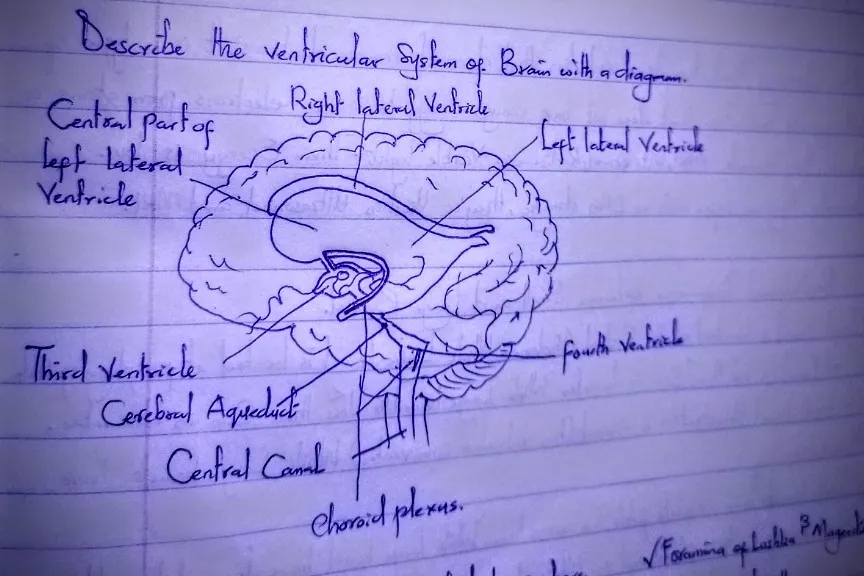 Describe the ventricular System of Brain with a diagram.
Right lateral Ventricle
Central part of
left lateral
Ventricle
Left lateral Ventricle
Third Ventricle
fourth Ventricle
Cerebral Aqueduct
Central Canal
Choroid plexus.
√ Foramina of Lushka &